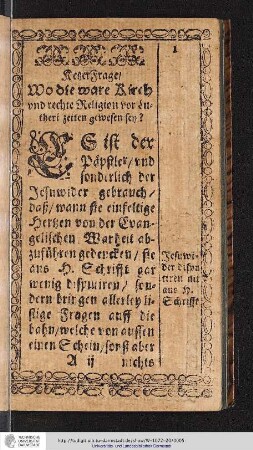 1
KetzerFrage/
Wo die ware Kirch
vnd rechte Religion vor Lu-
theri zeiten gewesen sey?
ES ist der
Päpstler/ vnd
sonderlich der
Jesuwider gebrauch/
daß/ wann sie einfeltige
Hertzen von der Evan-
gelischen Warheit ab-
zuführen gedencken/ sie
aus H. Schrifft gar
wenig disputiren/ son-
dern bringen allerley li-
stige Fragen auff die
bahn/ welche von aussen
einen Schein/ sonst aber
A ij nichts
Jesuwi-
der dispu-
tiren nit
aus H.
Schrifft
Universitäts- und Landesbibliothek Darmstadt